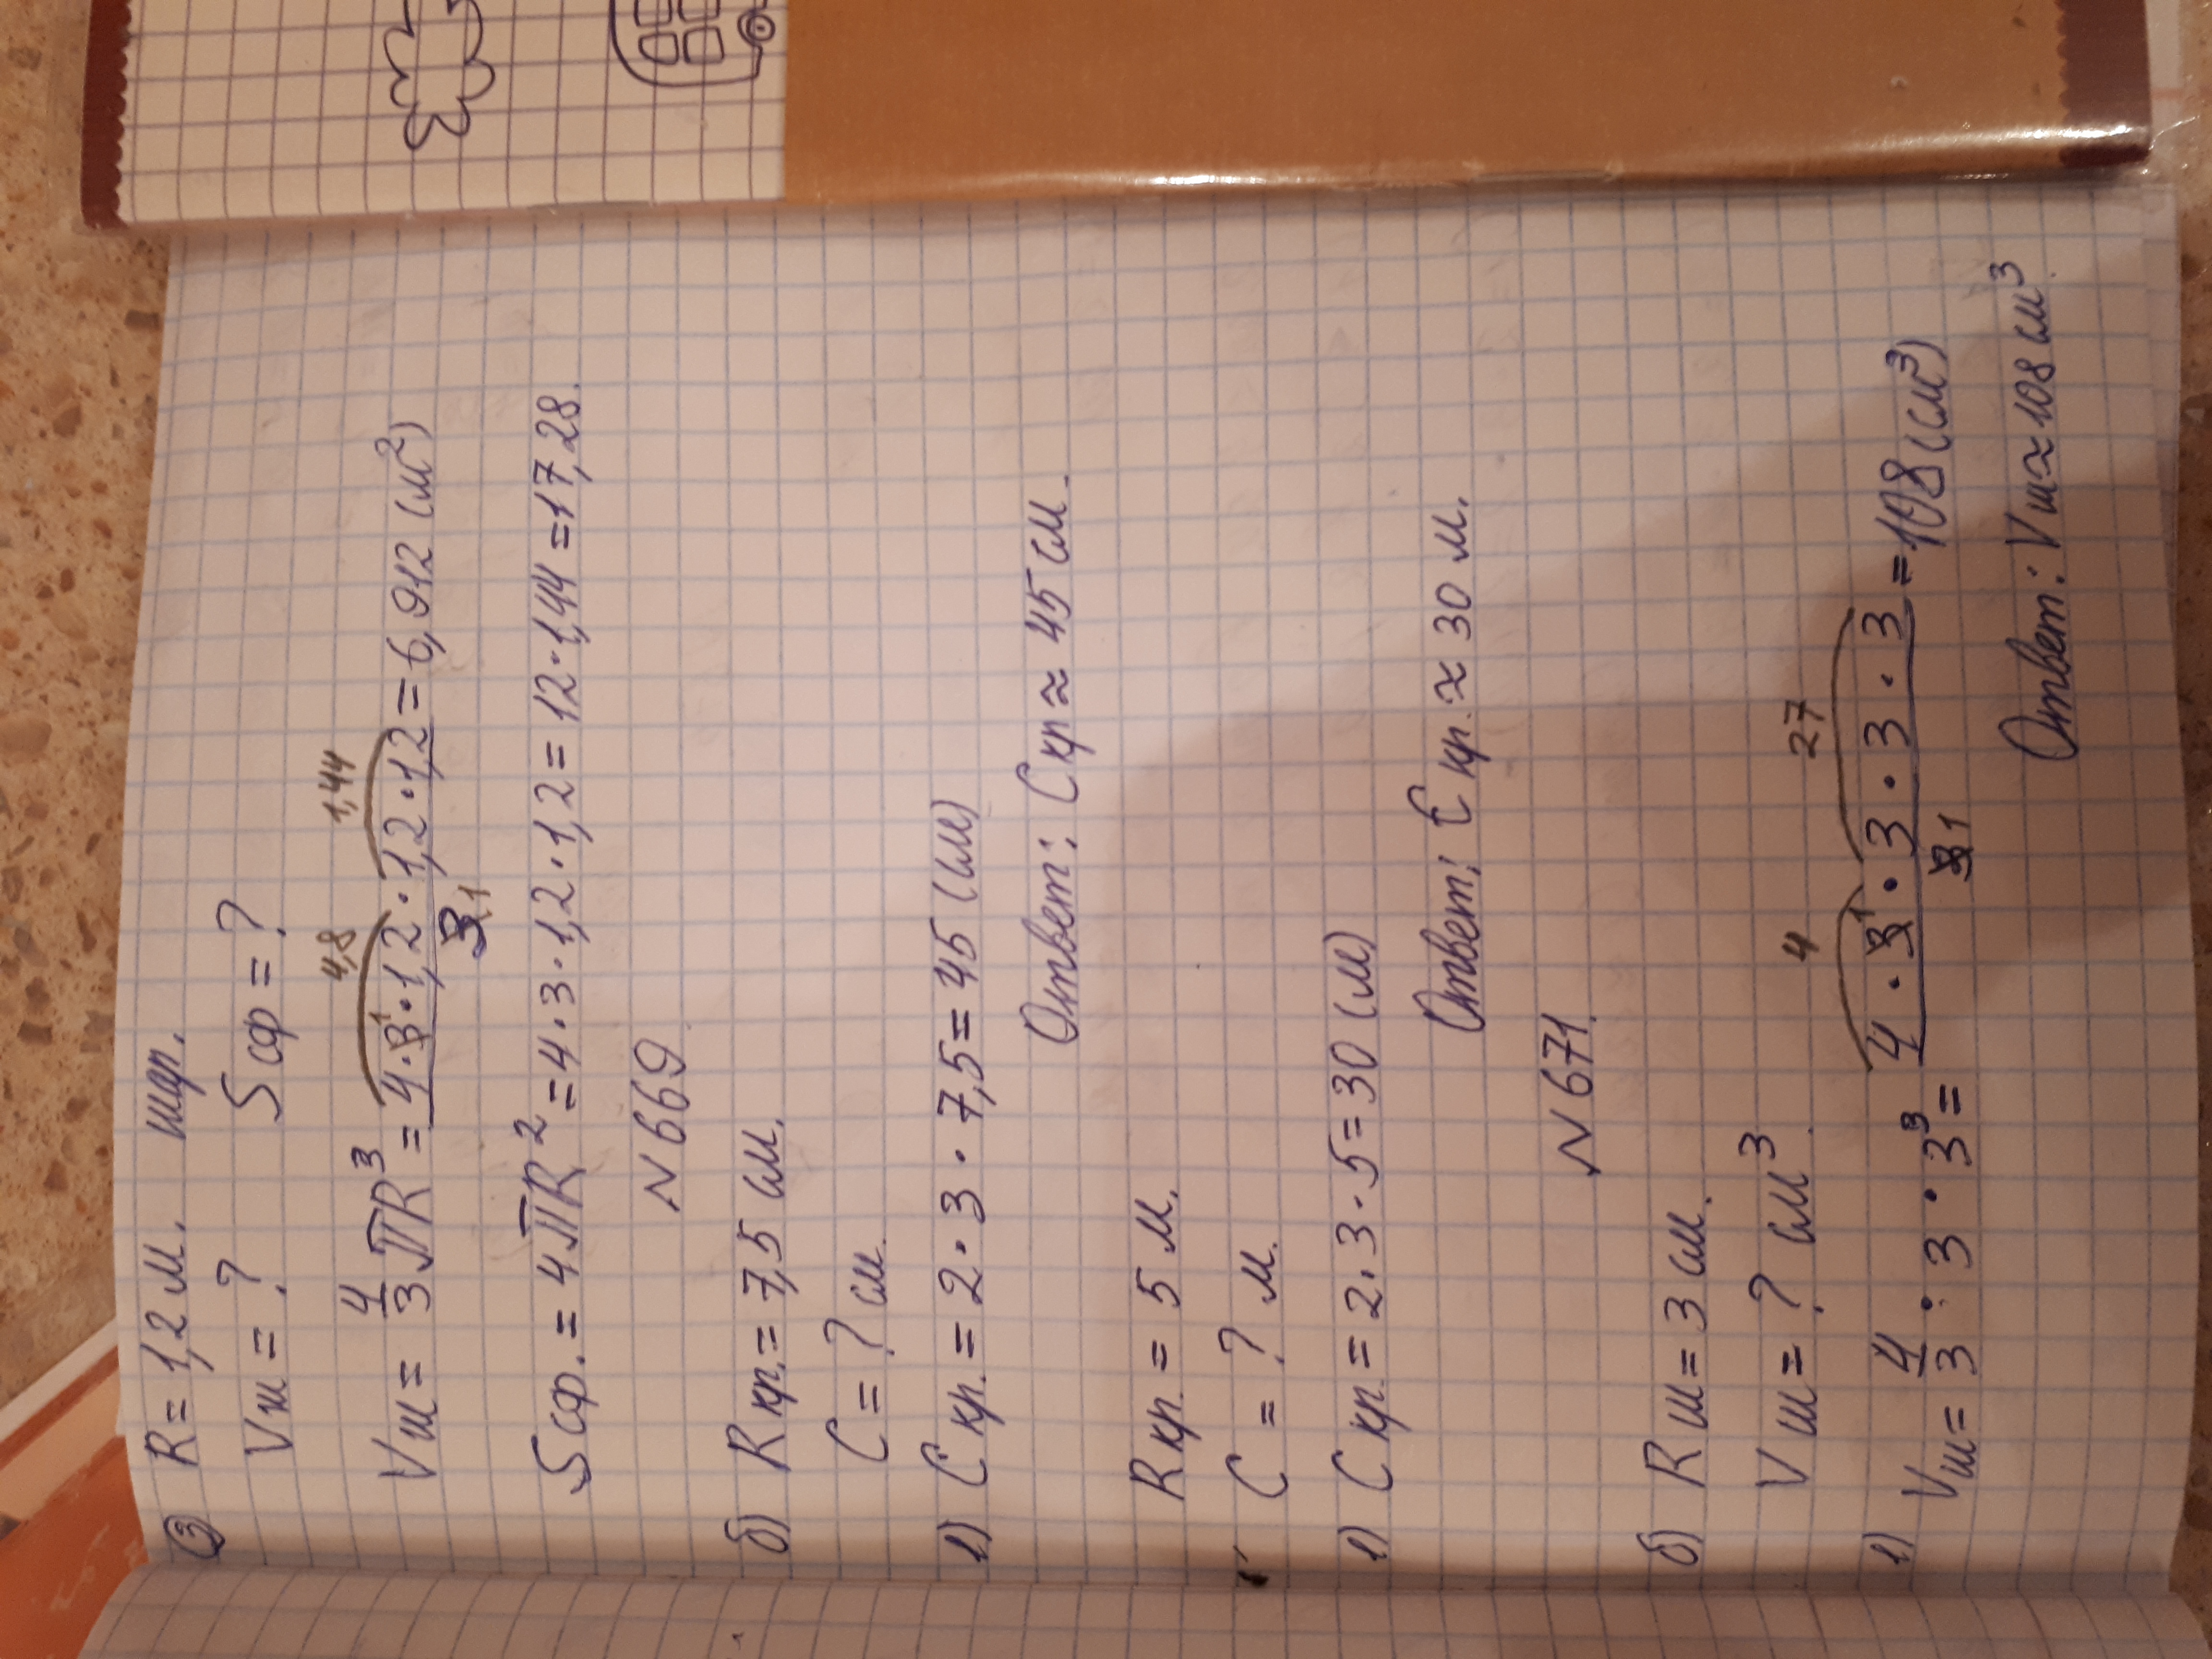 ③ R = 1,2 м. шар.
Vш = ? Sсф = ?
4,8 1,44
Vш = 4/3 πR³ = 4·3¹·1,2·1,2·1,2 / 3 1 = 6,912 (см²)
Sсф. = 4πR² = 4·3·1,2·1,2 = 12·1,44 = 17,28.
N 669
б) Rкр. = 7,5 см.
C = ? см.
1) Cкр. = 2·3·7,5 = 45 (см)
Ответ: Cкр ≈ 45 см.
Rкр. = 5 м.
C = ? м.
1) Cкр. = 2·3·5 = 30 (м)
Ответ: Cкр. ≈ 30 м.
N 671.
б) Rш = 3 см.
Vш = ? см³.
4 27
1) Vш = 4/3 : 3·3³ = 4·3¹·3·3·3 / 3 1 = 108 (см³)
Ответ: Vш ≈ 108 см³.